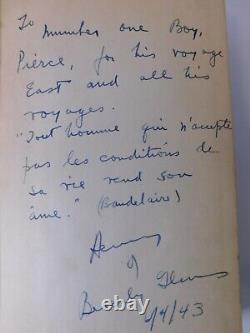 To
Number one Boy,
Pierce, for his voyage
East and all his
voyages.
"Tout homme qui n'accepte
pas les conditions de
sa vie rend son
âme." (Baudelaire)
Henry
of
Beverly Glen
6/4/43